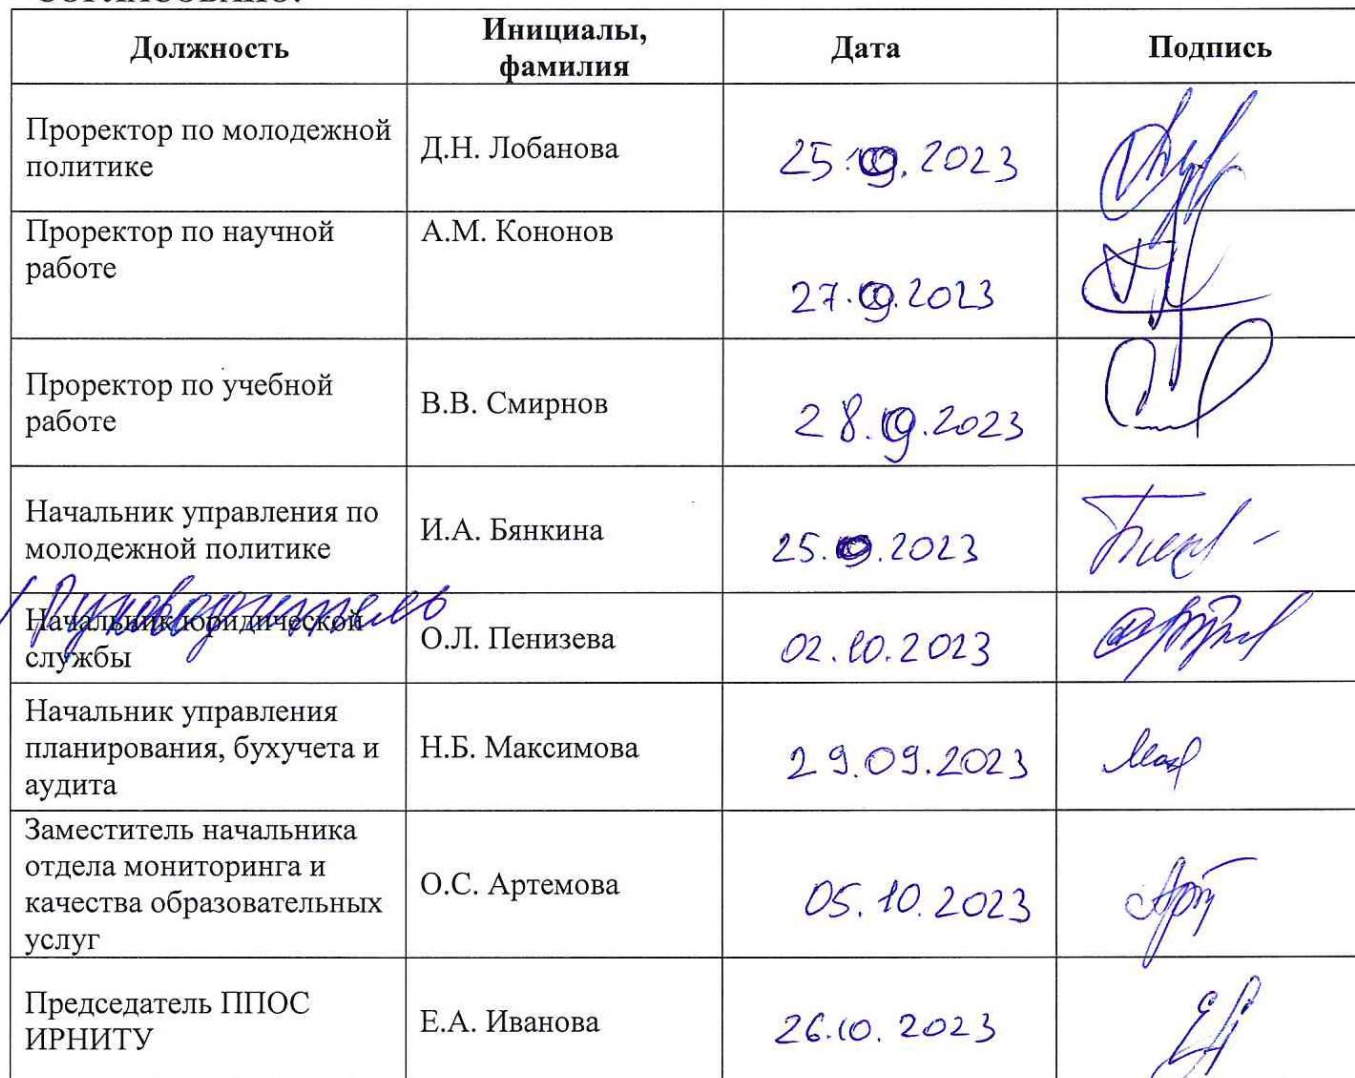 СОГЛАСОВАНО:
Должность
Инициалы,
фамилия
Дата
Подпись
Проректор по молодежной
политике
Д.Н. Лобанова
25.09.2023
Проректор по научной
работе
А.М. Кононов
27.09.2023
Проректор по учебной
работе
В.В. Смирнов
28.09.2023
Начальник управления по
молодежной политике
И.А. Бянкина
25.09.2023
Руководитель
Начальник юридической
службы
О.Л. Пенизева
02.10.2023
Начальник управления
планирования, бухучета и
аудита
Н.Б. Максимова
29.09.2023
Заместитель начальника
отдела мониторинга и
качества образовательных
услуг
О.С. Артемова
05.10.2023
Председатель ППОС
ИРНИТУ
Е.А. Иванова
26.10.2023